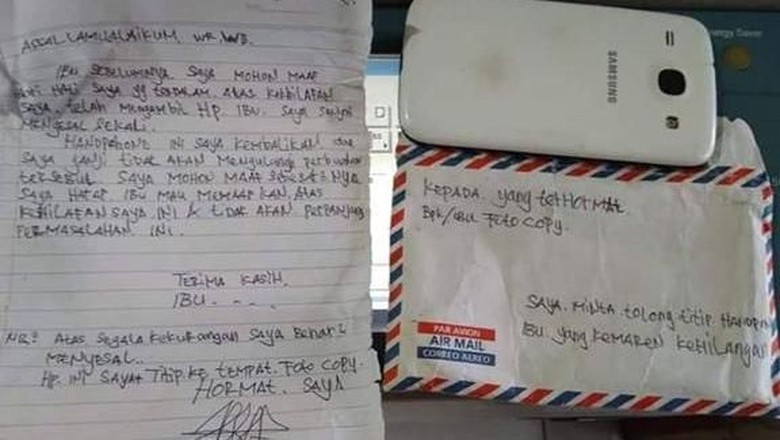 ASSAL LAMUALAIKUM. WR. WB.
IBU SEBELUMNYA SAYA MOHON MAAF
DARI HATI SAYA YG TERDALAM. ATAS KEKHILAFAN
SAYA. telah MENGAMBIL HP. IBU. SAYA SANGAT
MENYESAL SEKALI.
HANDPHONE INI SAYA KEMBALIKAN dan
SAYA JANJI tidak AKAN MENGULANGI PERBUATAN
tersebut SAYA MOHON MAAF
SAYA HARAP IBU MAU MEMAAFKAN. ATAS
KEKHILAFAN SAYA INI & tidak AKAN PERPANJANG
PERMASALAHAN INI.
TERIMA KASIH.
IBU. . . .
NB: Atas SEGALA KEKURANGAN SAYA BENAR2
MENYESAL.
Hp. INI SAYA TITIP KE TEMPAT. Foto COPY.
HORMAT. SAYA
SAMSUNG
Energy Saver
KEPADA. yang terHORMAT.
Bpk/IBU FOTO COPY.
SAYA. MINTA tolong titip HANDPHONE
IBU. yang KEMAREN KEHILANGAN
PAR AVION
AIR MAIL
CORREO AEREO